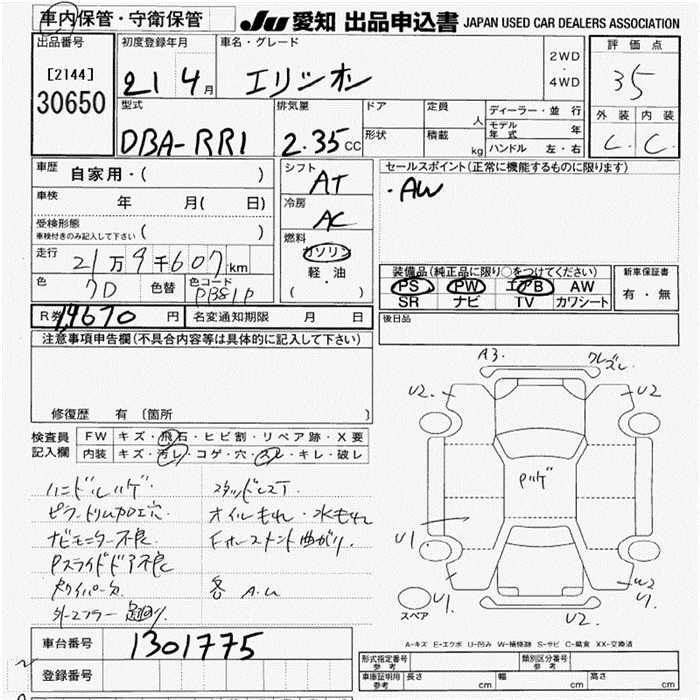 車内保管・守衛保管 JU 愛知 出品申込書 JAPAN USED CAR DEALERS ASSOCIATION
出品番号 [2144] 30650
初度登録年月 21 4月
車名・グレード エリシオン
2WD・4WD
評価点 35
外装 内装
C C
型式 DBA-RR1
排気量 2.35cc
ドア 形状
定員 人
積載 kg
ディーラー・並行
モデル年式 年
ハンドル 左・右
車歴 自家用・( )
車検 年 月( 日)
受検形態 車検付きのみ記入して下さい ( )
走行 21万9千607km
色 色替 色コード
シフト AT
冷房 AC
燃料 ガソリン 軽油 ( )
セールスポイント(正常に機能するものに限ります)
・AW
装備品(純正品に限り○をつけてください)
PS PW エアB AW
SR ナビ TV カワシート
新車保証書 有・無
後日品
R券 19670円
名変通知期限 月 日
注意事項申告欄(不具合内容等は具体的に記入して下さい)
修復歴 有 [箇所 ]
検査員記入欄
FW キズ・飛石・ヒビ割・リペア跡・X要
内装 キズ・汚レ・コゲ・穴・スレ・キレ・破レ
ハンドルハゲ スタッドレスT
オイルもれ・水もれ
ナビモニター不良
Pスライドドア不良
各 A.U
A3.
U2.
U2
Pハゲ
U1
U1.
U2.
スペア
A-キズ E-エクボ U-凹み W-補修跡 S-サビ C-腐食 XX-交換済
車台番号 1301775
登録番号
形式指定番号 参考
類別区分番号 参考
車庫証明用 参考 長さ cm 幅 cm 高さ cm